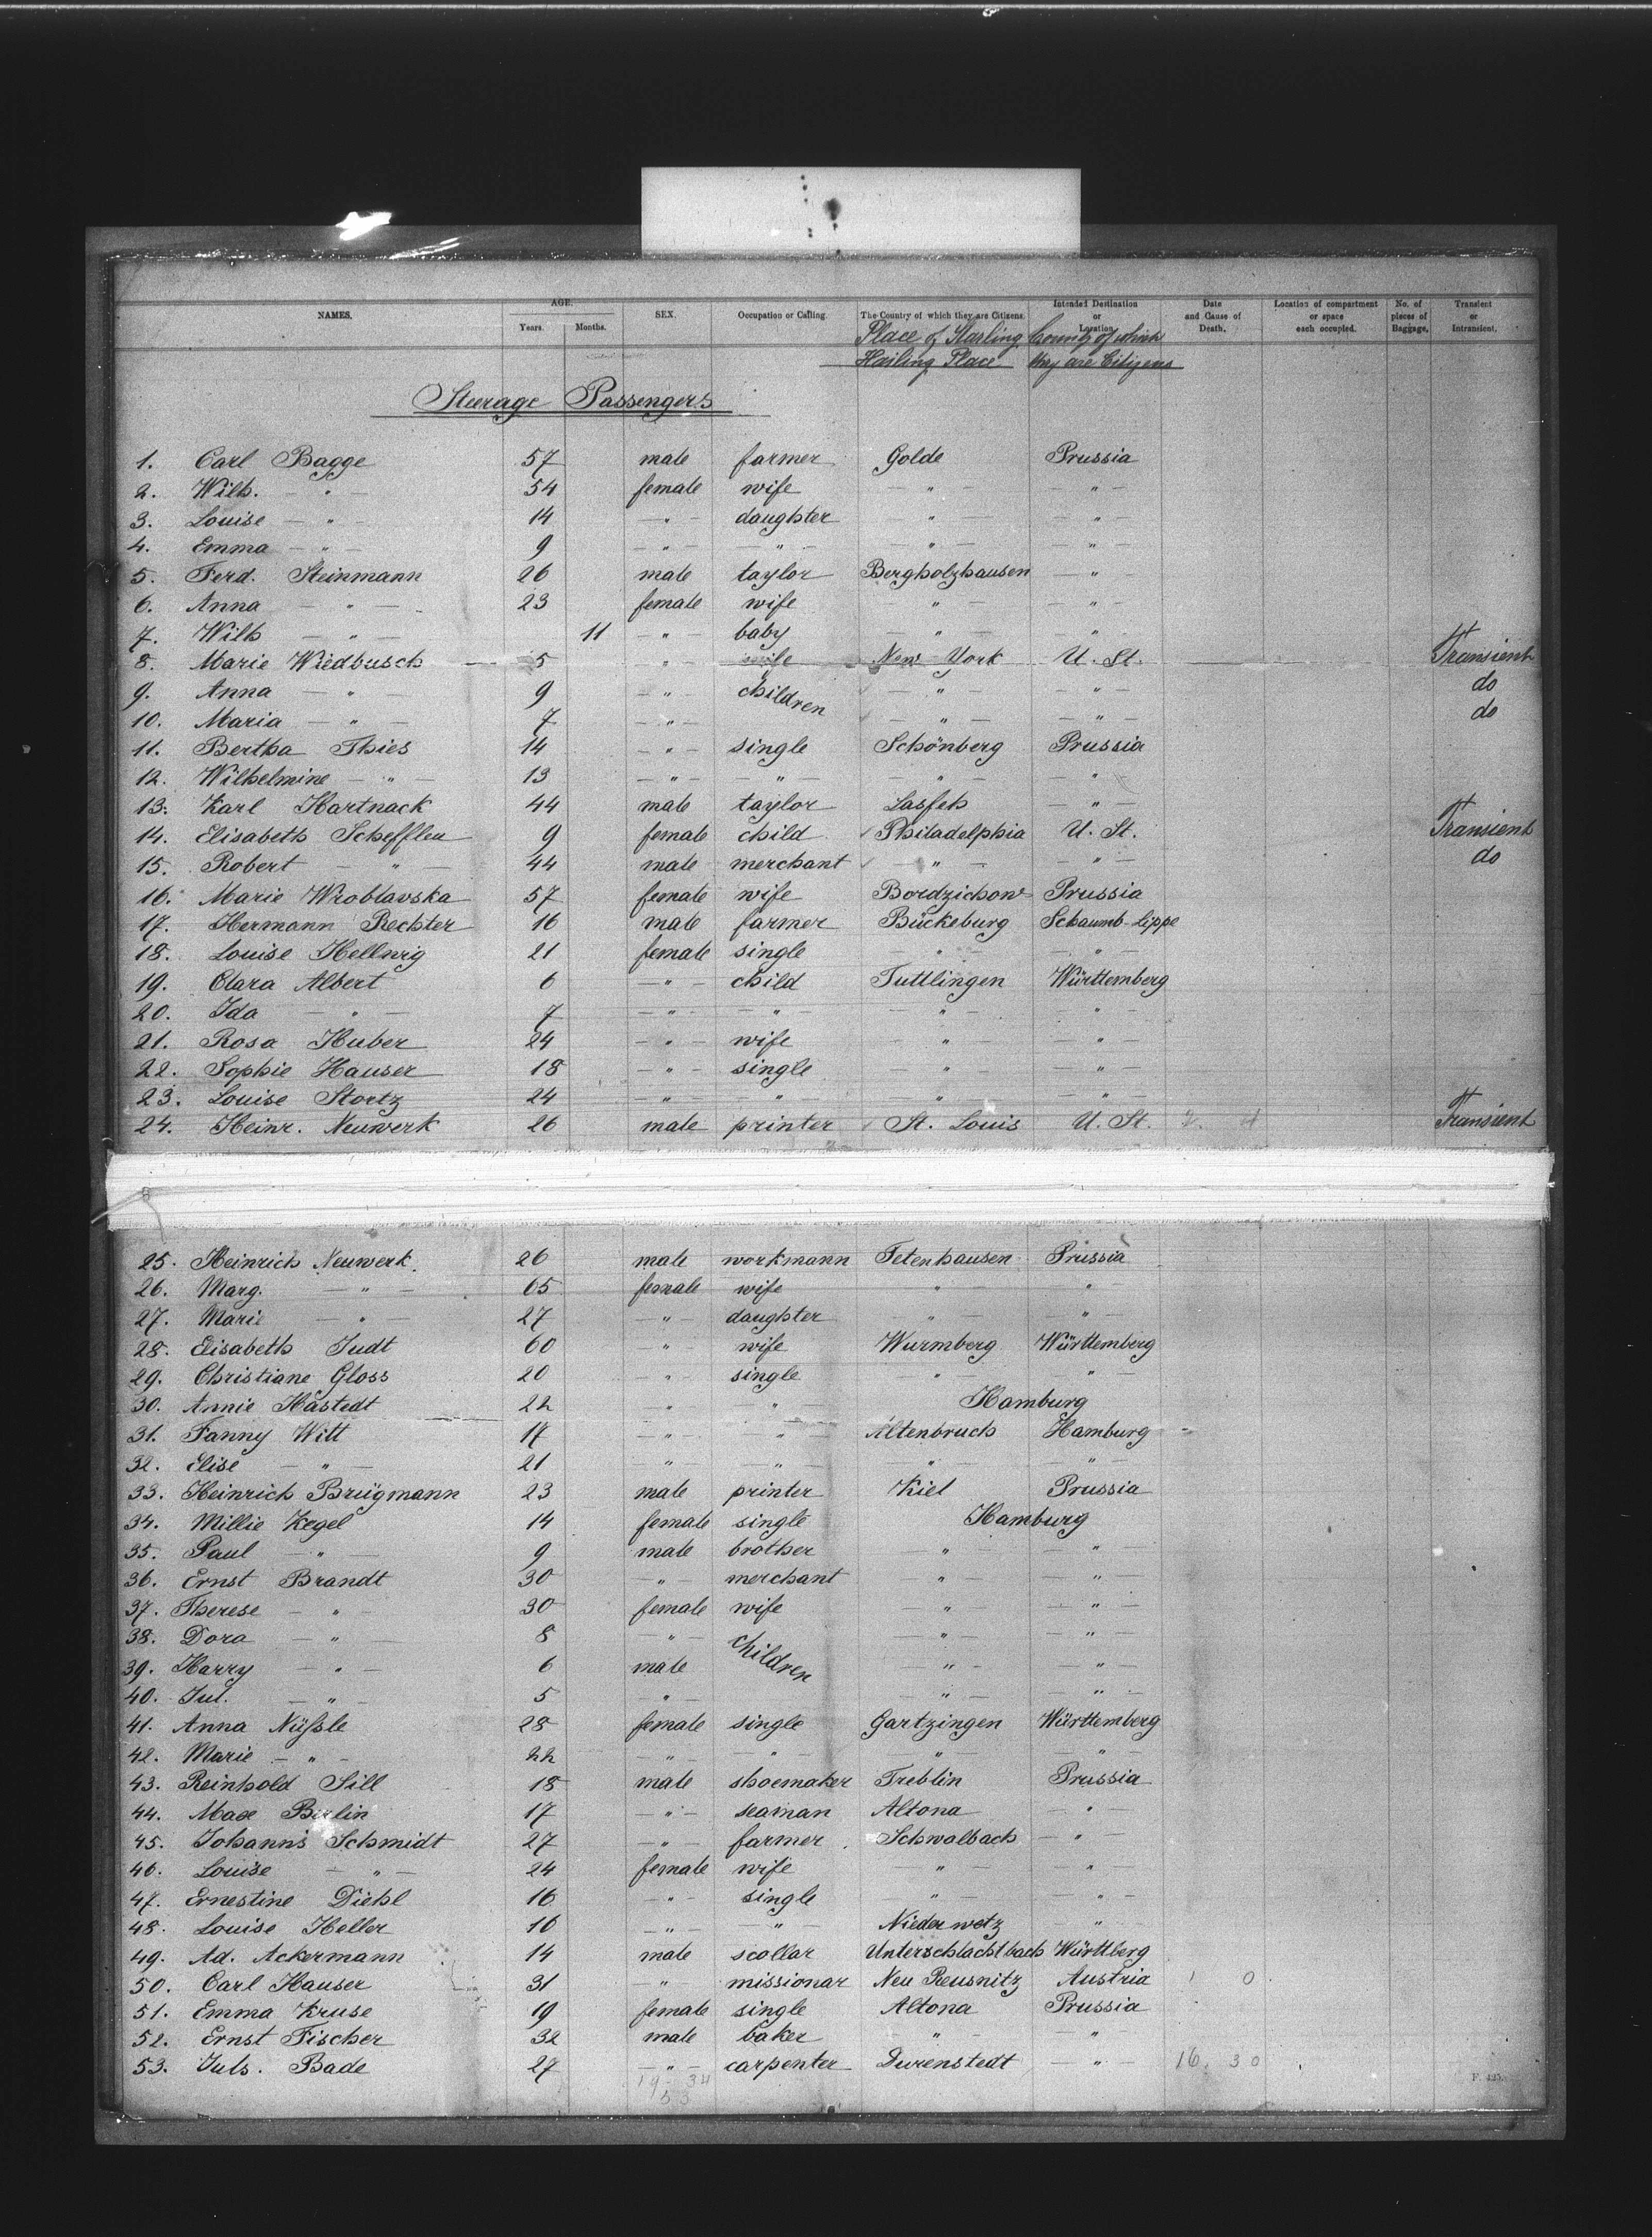 NAMES. AGE. Years. Months. SEX. Occupation or Calling. The Country of which they are Citizens. Intended Destination or Location. Date and Cause of Death. Location of compartment or space each occupied. No. of pieces of Baggage. Transient or Intransient.
Place of Starling County of which
Hailing Place they are Citizens
Steerage Passengers
1. Carl Bagge 57 male farmer Golde Prussia
2. Wilh. — " — 54 female wife — " — — " —
3. Louise — " — 14 — " — daughter " — " —
4. Emma — " — 9 — " — — " — — " — — " —
5. Ferd. Steinmann 26 male taylor Bergholzhausen — " —
6. Anna — " — 23 female wife " — — " —
7. Wilh — " — 11 — " — baby — " — — " —
8. Marie Wiedbusch 5 " — wife New York U. St. Transient
9. Anna — " — 9 — " — children — " — — " — do
10. Maria — " — 7 — " — — " — — " — do
11. Bertha Thies 14 — " — single Schönberg Prussia
12. Wilhelmine — " — 13 — " — — " — — " — — " —
13. Karl Hartnack 44 male taylor Lasfeh — " —
14. Elisabeth Schefflea 9 female child Philadelphia U. St. Transient
15. Robert — " — 44 male merchant — " — — " — do
16. Marie Wroblavska 57 female wife Bordzichow Prussia
17. Hermann Rechter 16 male farmer Bückeburg Schaumb-Lippe
18. Louise Hellwig 21 female single — " — — " —
19. Clara Albert 6 — " — child Tuttlingen Württemberg
20. Ida — " — 7 — " — — " — — " — " —
21. Rosa Huber 24 — " — wife — " — — " —
22. Sophie Hauser 18 — " — single — " — " —
23. Louise Stortz 24 — " — — " — " — " —
24. Heinr. Neuwerk 26 male printer St. Louis U. St. Transient
25. Heinrich Neuwerk 26 male workmann Fetenhausen Prussia
26. Marg. — " — 65 female wife " — "
27. Marie — " — 27 — " — daughter — " — "
28. Elisabeth Judt 60 " — wife Wurmberg Württemberg
29. Christiane Gloss 20 " — single " — — " —
30. Annie Hastedt 22 " " — Hamburg
31. Fanny Witt 17 — " — " — Altenbruch Hamburg
32. Elise — " — 21 " — — " — " — " —
33. Heinrich Brügmann 23 male printer Kiel Prussia
34. Millie Kegel 14 female single Hamburg
35. Paul — " — 9 male brother " — — " —
36. Ernst Brandt 30 — " — merchant " — — " —
37. Therese — " — 30 female wife " — — " —
38. Dora — " — 8 — " — children " — — " —
39. Harry — " — 6 male " — — " —
40. Jul. — " — 5 " — " — — " —
41. Anna Nüßle 28 female single Gartzingen Württemberg
42. Marie — " — 22 — " — — " — " — — " —
43. Reinhold Sill 18 male shoemaker Treblin Prussia
44. Max Berlin 17 — " — seaman Altona — " —
45. Johanns Schmidt 27 — " — farmer Schwalbach — "
46. Louise — " — 24 female wife " — "
47. Ernestine Diehl 16 — " — single " — " —
48. Louise Heller 16 — " — " — Niederwetz " —
49. Ad. Ackermann 14 male scollar Unterschlachtbach Württberg
50. Carl Hauser 31 — " — missionar Neu Reusnitz Austria 1 0
51. Emma Kruse 19 female single Altona Prussia
52. Ernst Fischer 32 male baker " — "
53. Juls. Bade 27 — " — carpenter Durenstedt — " — 16. 30
19 - 34
53